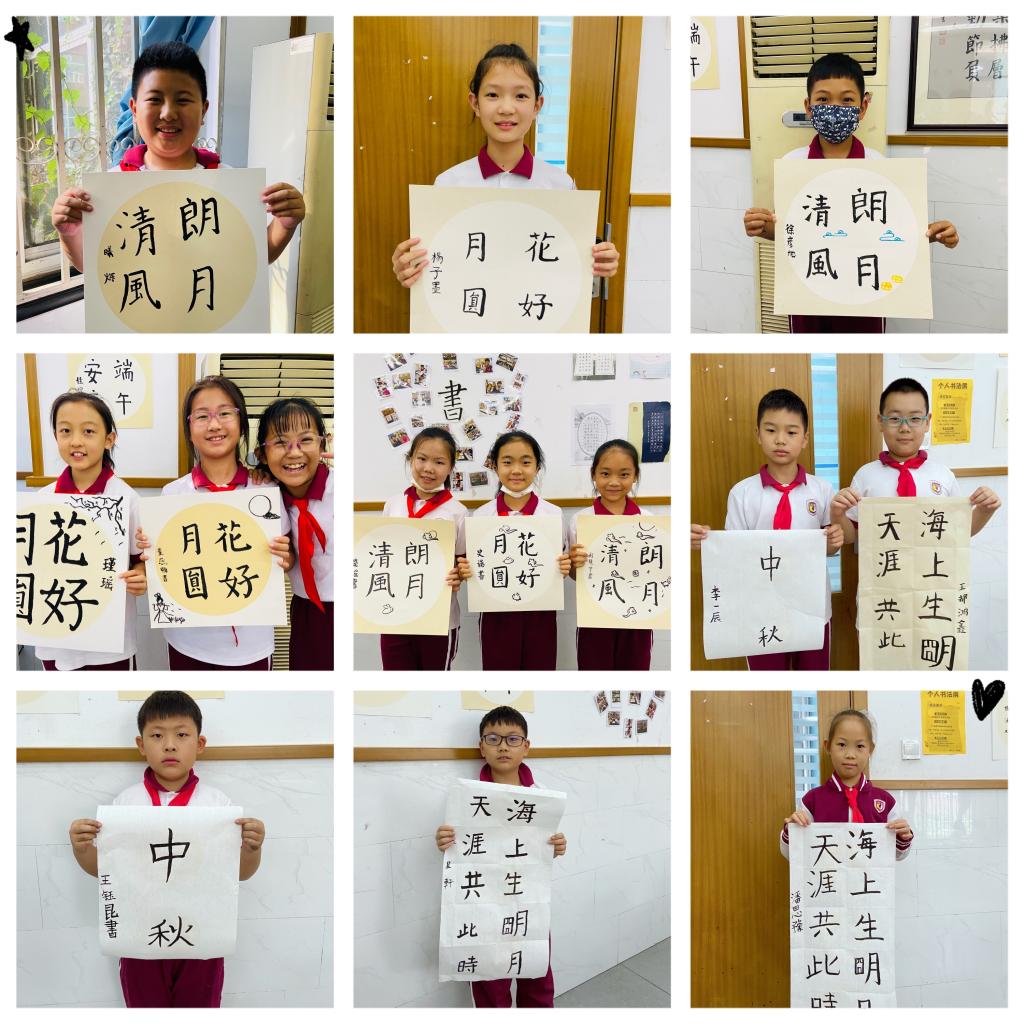 朗月
清風
花好
月圓
杨子墨
端午
朗月
清風
端午
安
花好
月圓
瑾瑶
花好
月圓
書
朗月
清風
花好
月圓
朗月
清風
中秋
李一辰
个人书法展
海上生朙
天涯共此
中秋
王钰昆書
海上生朙月
天涯共此時
个人书法展
海上生朙月
天涯共此時